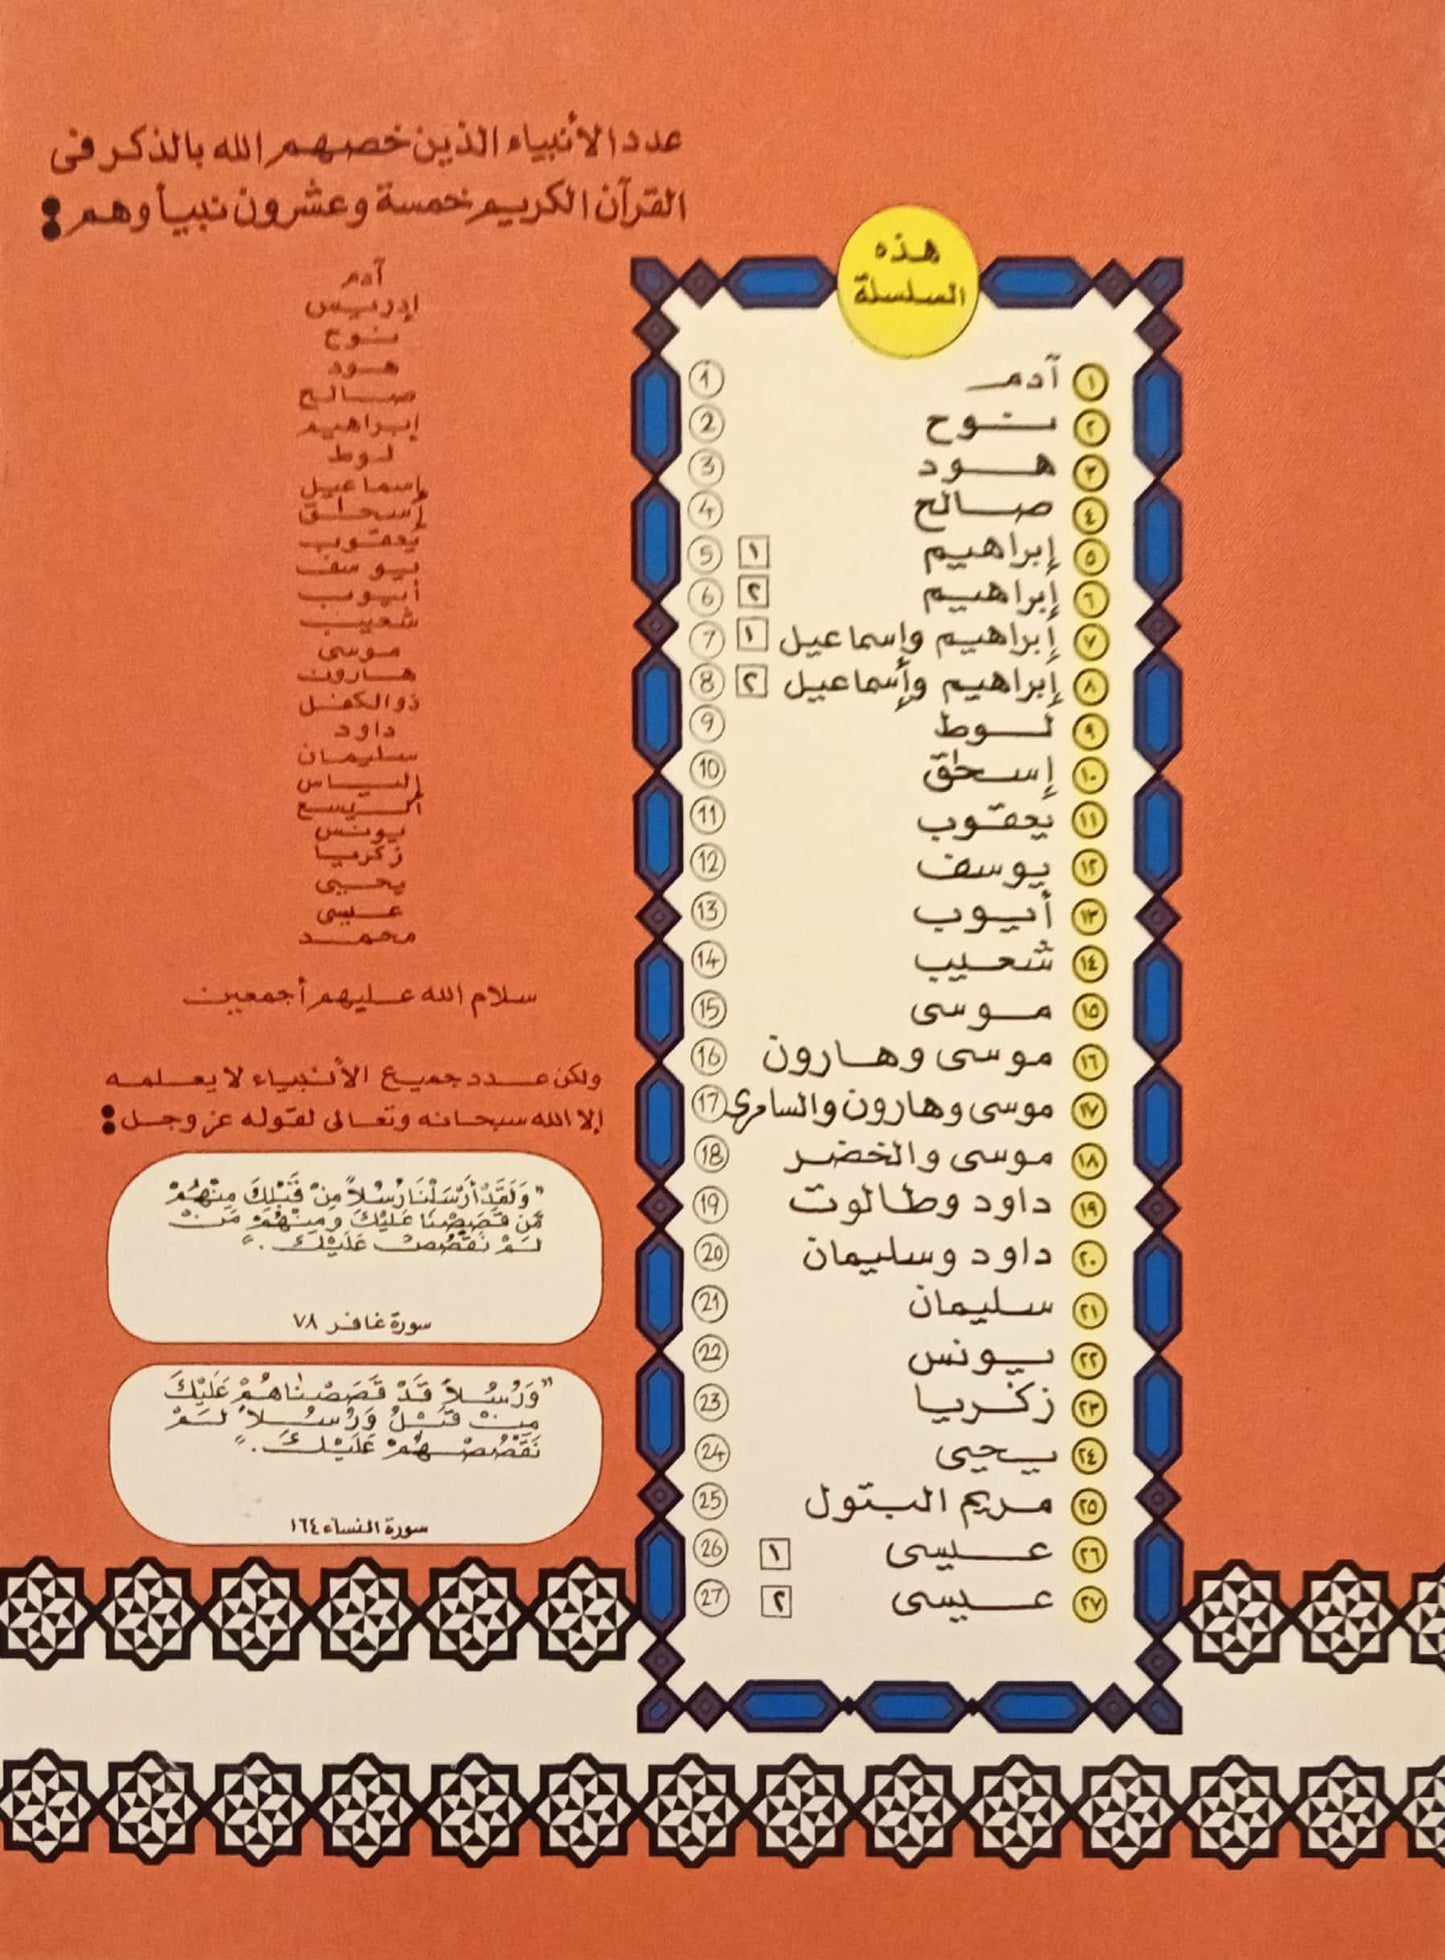 عدد الأنبياء الذين خصهم الله بالذكر فى
القرآن الكريم خمسة وعشرون نبياً وهم :
آدم
إدريس
نوح
هود
صالح
إبراهيم
لوط
إسماعيل
إسحاق
يعقوب
يوسف
أيوب
شعيب
موسى
هارون
ذو الكفل
داود
سليمان
إلياس
أليسع
يونس
زكريا
يحيى
عيسى
محمد
سلام الله عليهم أجمعين
ولكن عدد جميع الأنبياء لا يعلمه
إلا الله سبحانه وتعالى لقوله عز وجل :
"وَلَقَدْ أَرْسَلْنَا رُسُلاً مِنْ قَبْلِكَ مِنْهُمْ
مَّنْ قَصَصْنَا عَلَيْكَ وَمِنْهُمْ مَنْ
لَمْ نَقْصُصْ عَلَيْكَ ."
سورة غافر ٧٨
"وَرُسُلاً قَدْ قَصَصْنَاهُمْ عَلَيْكَ
مِنْ قَبْلُ وَرُسُلاً لَمْ
نَقْصُصْهُمْ عَلَيْكَ ."
سورة النساء ١٦٤
هذه
السلسلة
١ آدم 1
٢ نوح 2
٣ هود 3
٤ صالح 4
٥ إبراهيم ١ 5
٦ إبراهيم ٢ 6
٧ إبراهيم وإسماعيل ١ 7
٨ إبراهيم وإسماعيل ٢ 8
٩ لوط 9
١٠ إسحق 10
١١ يعقوب 11
١٢ يوسف 12
١٣ أيوب 13
١٤ شعيب 14
١٥ موسى 15
١٦ موسى وهارون 16
١٧ موسى وهارون والسامرى 17
١٨ موسى والخضر 18
١٩ داود وطالوت 19
٢٠ داود وسليمان 20
٢١ سليمان 21
٢٢ يونس 22
٢٣ زكريا 23
٢٤ يحيى 24
٢٥ مريم البتول 25
٢٦ عيسى ١ 26
٢٧ عيسى ٢ 27